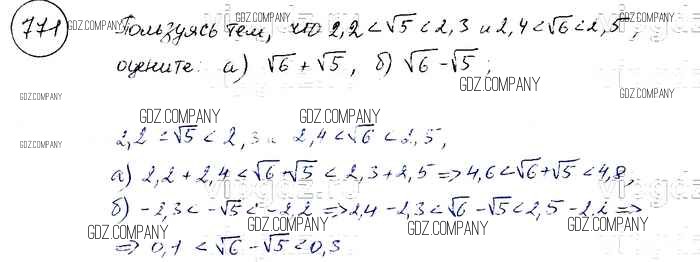 771 Пользуясь тем, что 2,2 < √5 < 2,3 и 2,4 < √6 < 2,5,
GDZ.COMPANY GDZ.COMPANY GDZ.COMPANY
оцените: а) √6 + √5, б) √6 - √5;
GDZ.COMPANY GDZ.COMPANY GDZ.COMPANY
GDZ.COMPANY GDZ.COMPANY
2,2 < √5 < 2,3 и 2,4 < √6 < 2,5,
GDZ.COMPANY GDZ.COMPANY
а) 2,2 + 2,4 < √6+√5 < 2,3 + 2,5 => 4,6 < √6 + √5 < 4,8,
GDZ.COMPANY GDZ.COMPANY
б) -2,3 < -√5 < -2,2 => 2,4 - 2,3 < √6 - √5 < 2,5 - 2,2 =>
GDZ.COMPANY GDZ.COMPANY GDZ.COMPANY
=> 0,1 < √6 - √5 < 0,3